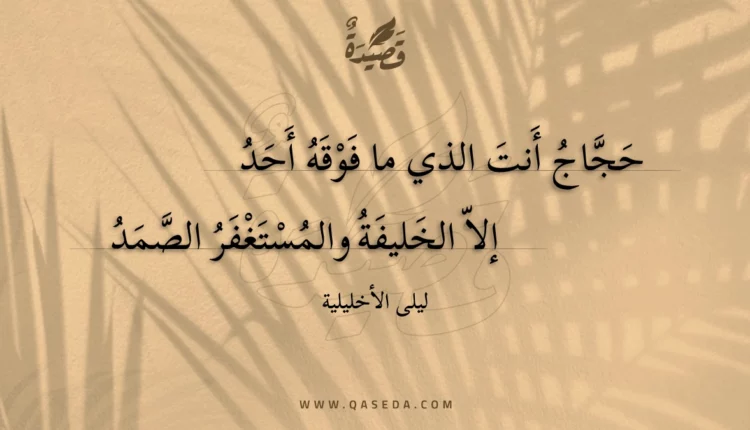 قَصِيْدَةٌ
حَجَّاجُ أَنتَ الذي ما فَوْقَهُ أَحَدُ
إلاّ الخَليفَةُ والمُسْتَغْفَرُ الصَّمَدُ
ليلى الأخليلية
WWW.QASEDA.COM